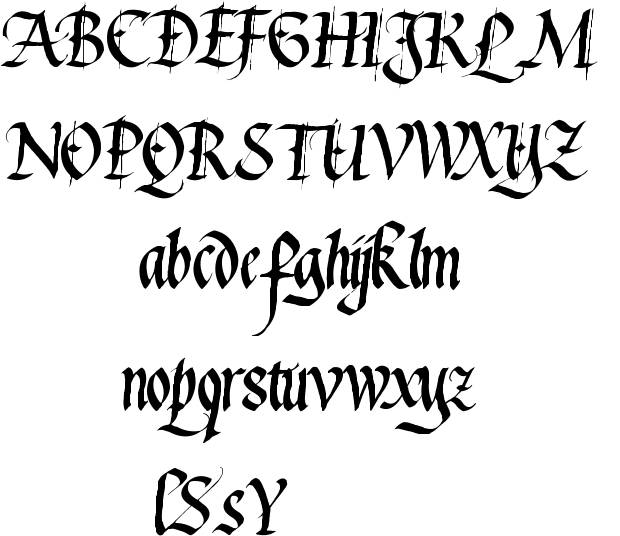 ABCDEFGHIJKLM
NOPQRSTUVWXYZ
abcdefghijklm
nopqrstuvwxyz
lSsY